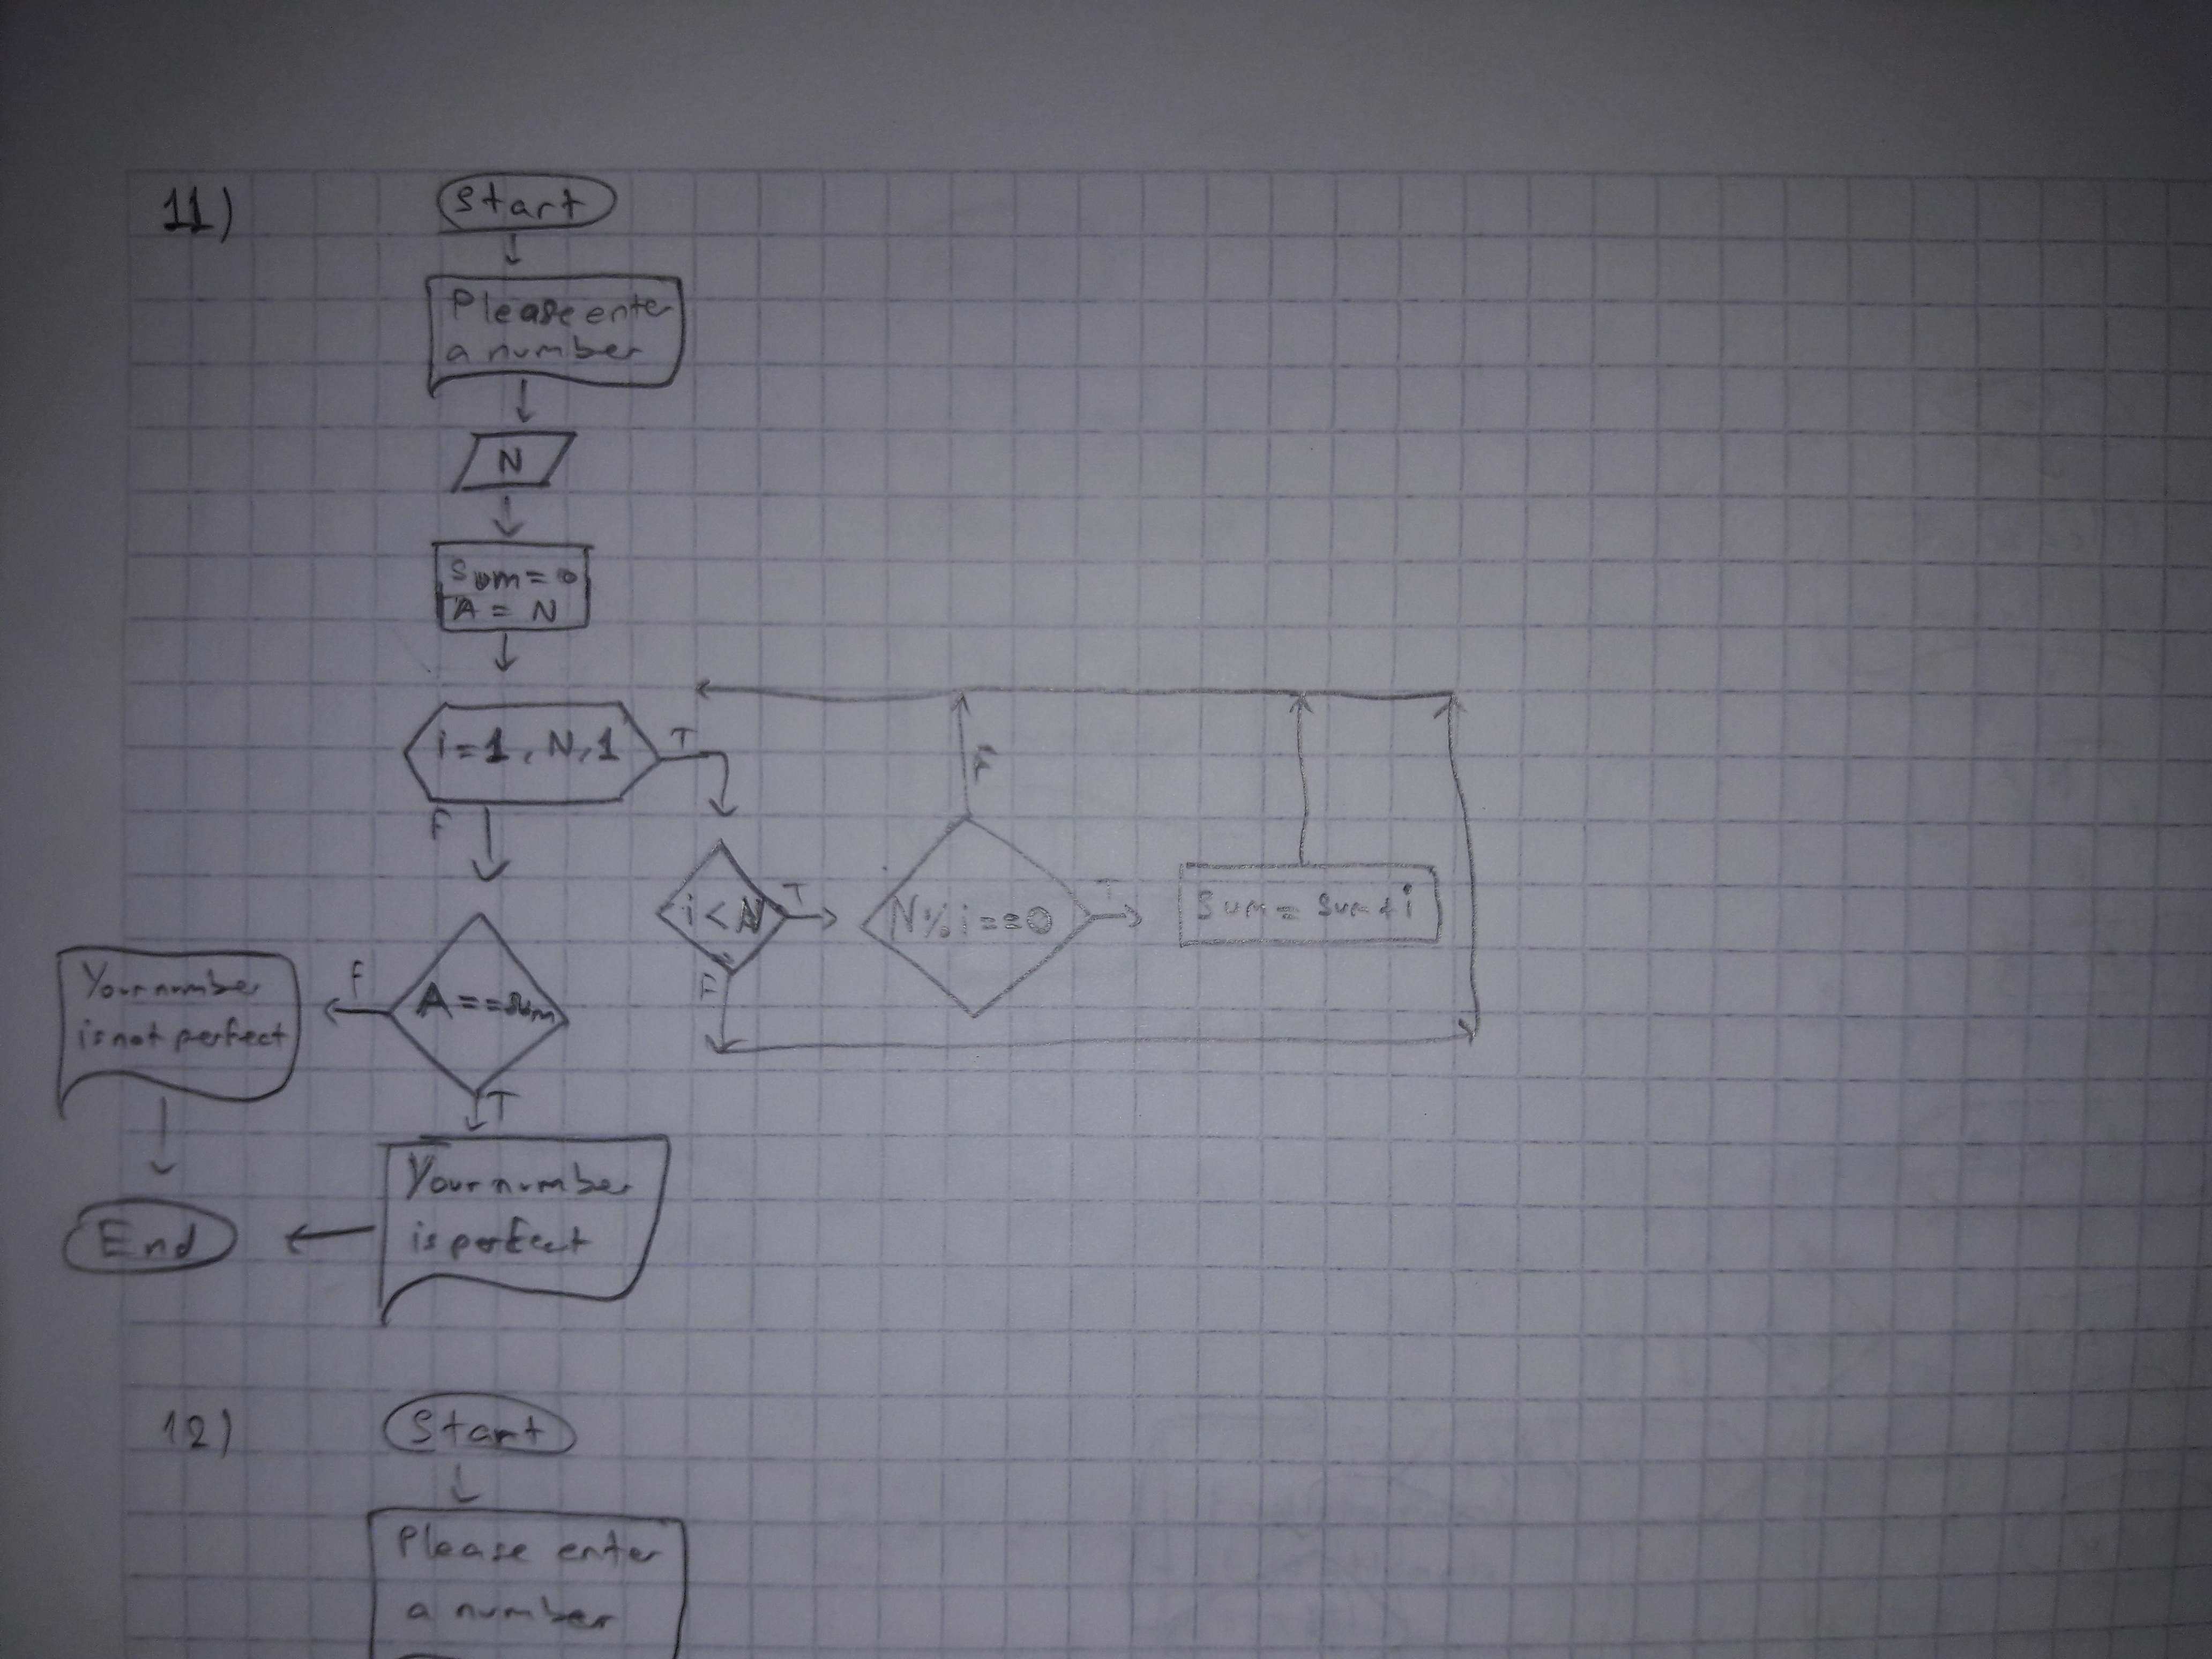 11)
Start
Please enter
a number
N
Sum = 0
A = N
i = 1, N, 1
T
F
F
i < N
T
F
N % i == 0
T
Sum = Sum + i
A == Sum
F
T
Your number
is not perfect
Your number
is perfect
End
12)
Start
Please enter
a number